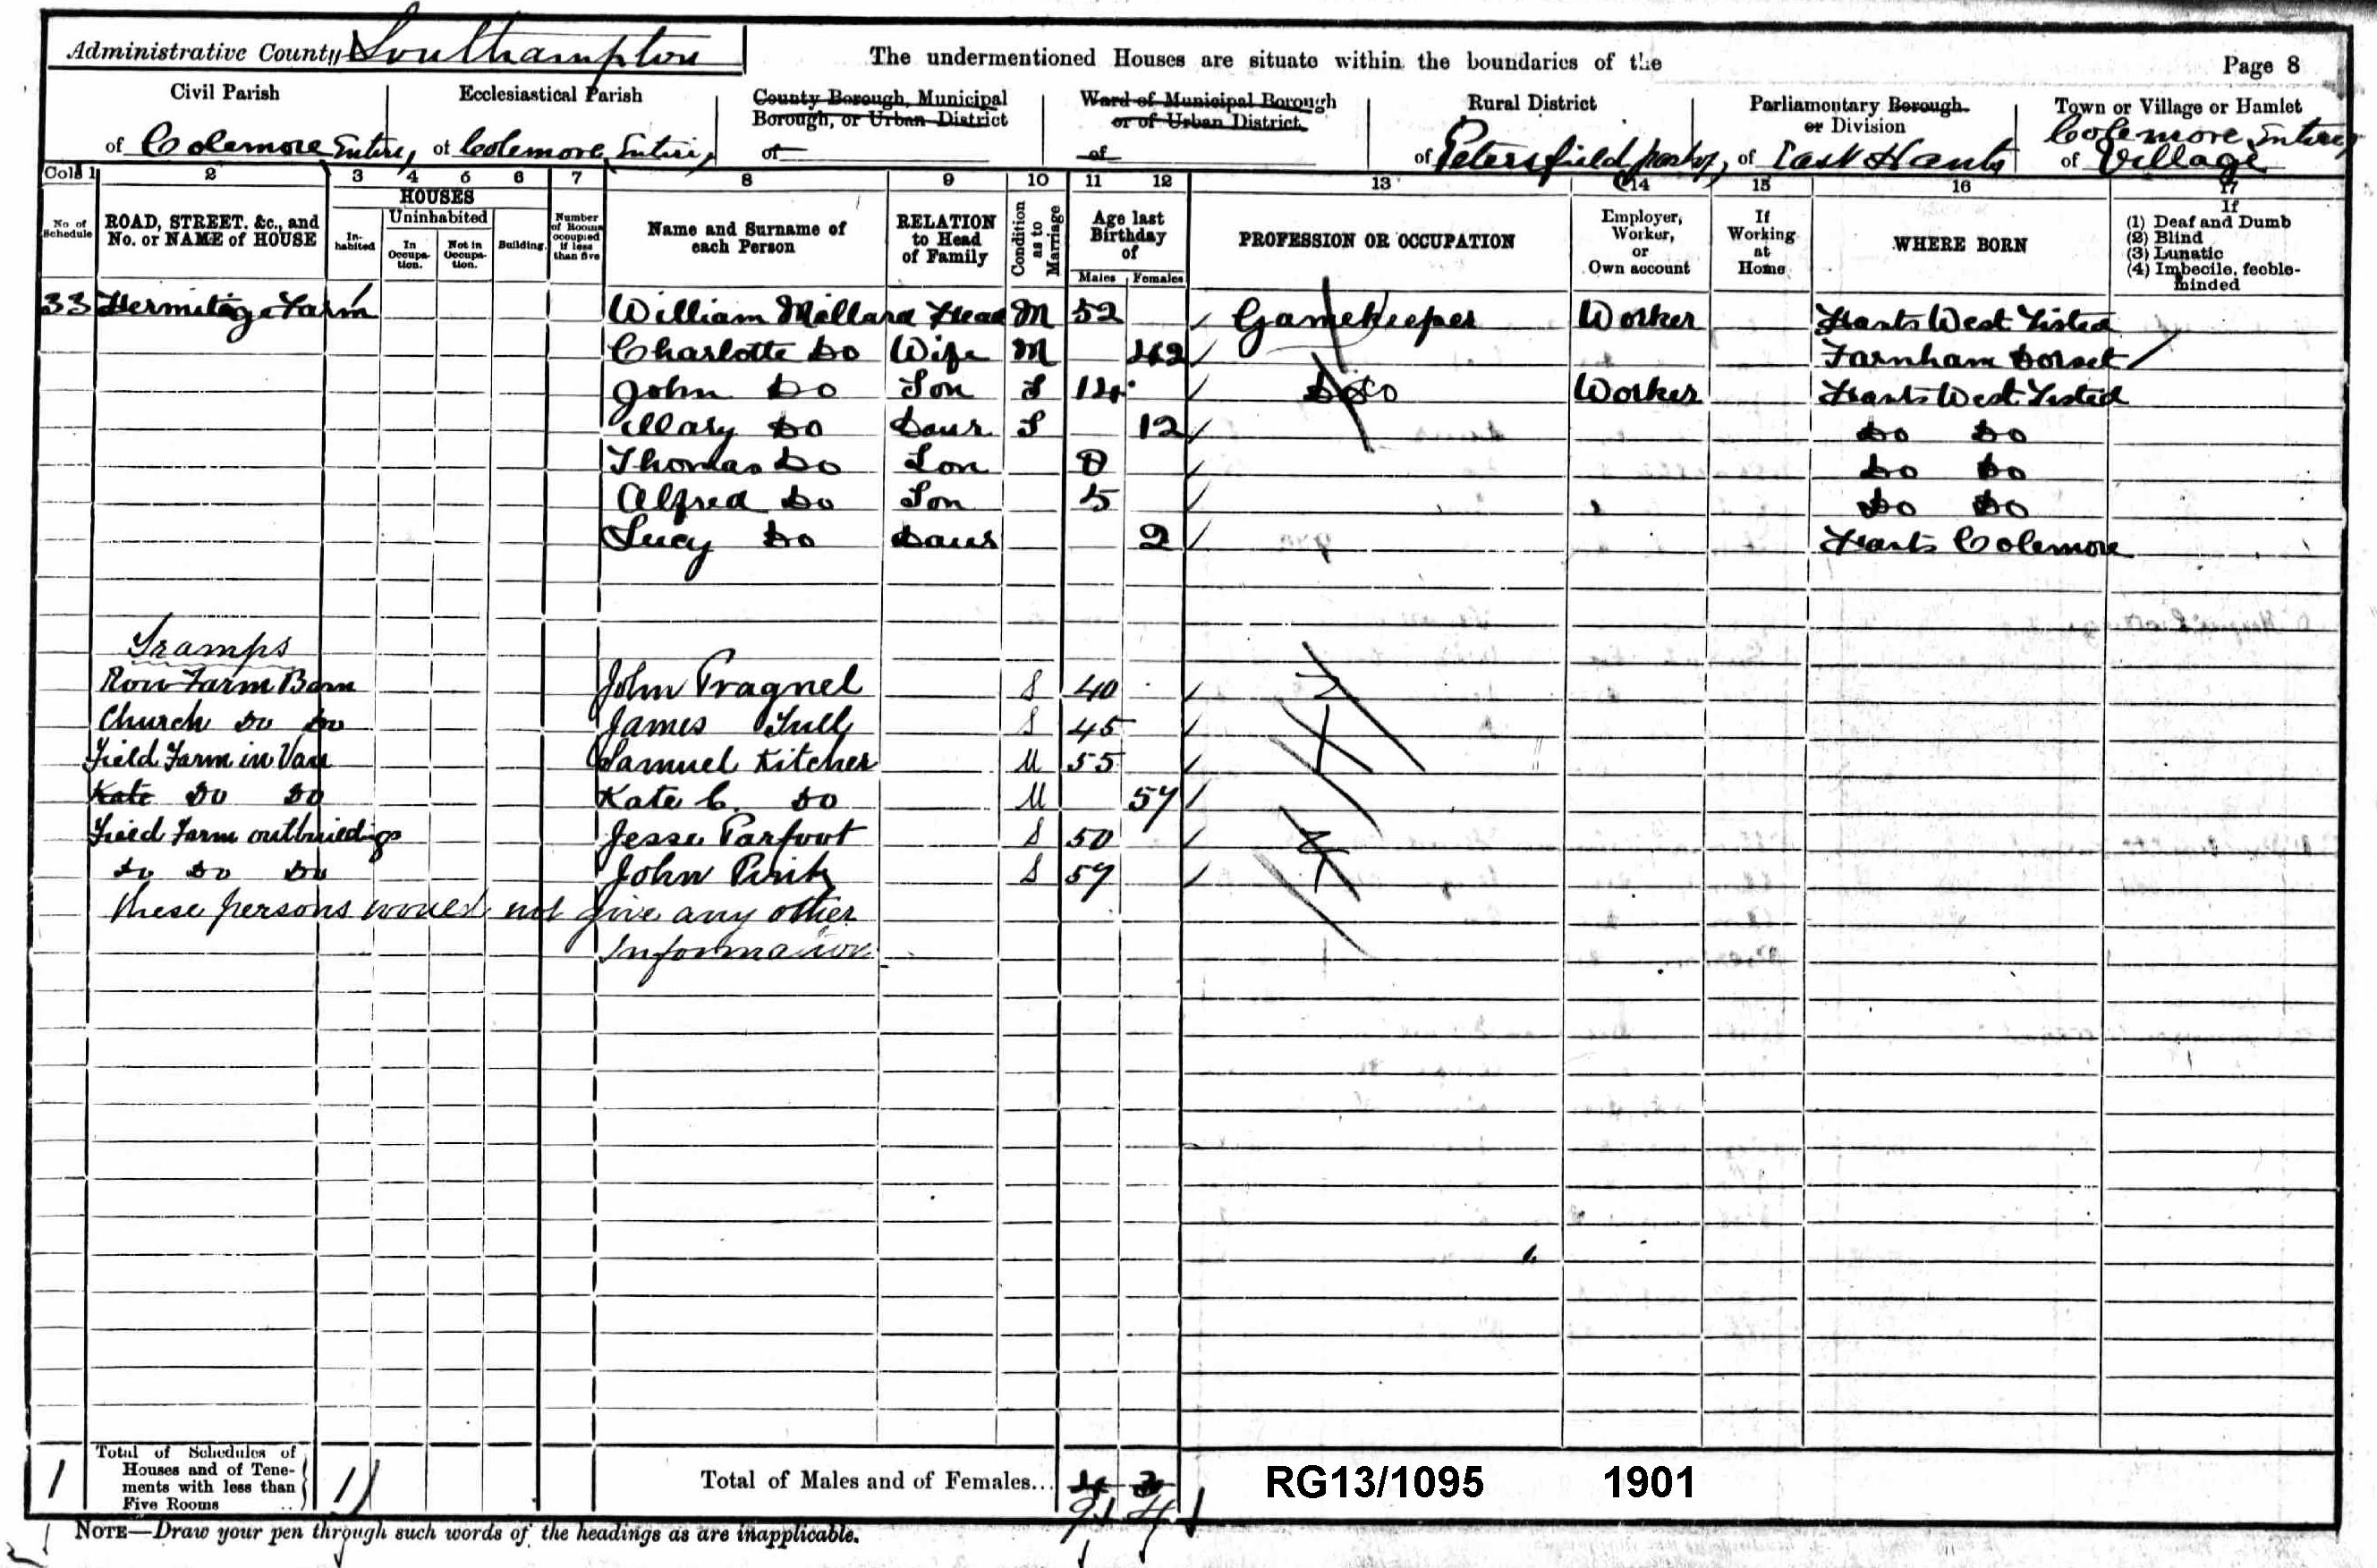 Administrative County Southampton The undermentioned Houses are situate within the boundaries of the Page 8
Civil Parish Ecclesiastical Parish County Borough, Municipal Borough, or Urban District Ward of Municipal Borough or of Urban District Rural District Parliamentary Borough or Division Town or Village or Hamlet
of Colemore Entire, of Colemore, Entire, of of of Petersfield of East Hants of Colemore Entire Village
Cols 1 2 3 4 5 6 7 8 9 10 11 12 13 14 15 16 17
No of Schedule ROAD, STREET, &c., and No. or NAME of HOUSE HOUSES Inhabited Uninhabited In Occupation. Not in Occupation. Building. Number of Rooms occupied if less than five Name and Surname of each Person RELATION to Head of Family Condition as to Marriage Age last Birthday of Males Females PROFESSION OR OCCUPATION Employer, Worker, or Own account If Working at Home WHERE BORN If (1) Deaf and Dumb (2) Blind (3) Lunatic (4) Imbecile, feeble-minded
33 Hermitage Farm 1 William Millard Head M 52 Gamekeeper Worker Hants West Tisted
Charlotte Do Wife M 42 Farnham Dorset
John Do Son S 14 Do Worker Hants West Tisted
Mary Do Daur S 12 Do Do
Thomas Do Son 8 Do Do
Alfred Do Son 5 Do Do
Lucy Do Daur 2 Hants Colemore
Tramps
Row Farm Barn John Pragnel S 40
Church Do Do James Tull S 45
Field Farm in Van Samuel Kitcher M 55
Kate Do Do Kate C. Do M 57
Field Farm outbuildings Jesse Parfoot S 50
Do Do Do John S 57
These persons would not give any other
Information
1 Total of Schedules of Houses and of Tenements with less than Five Rooms 1 Total of Males and of Females... 4 3 RG13/1095 1901
9 4
NOTE—Draw your pen through such words of the headings as are inapplicable.